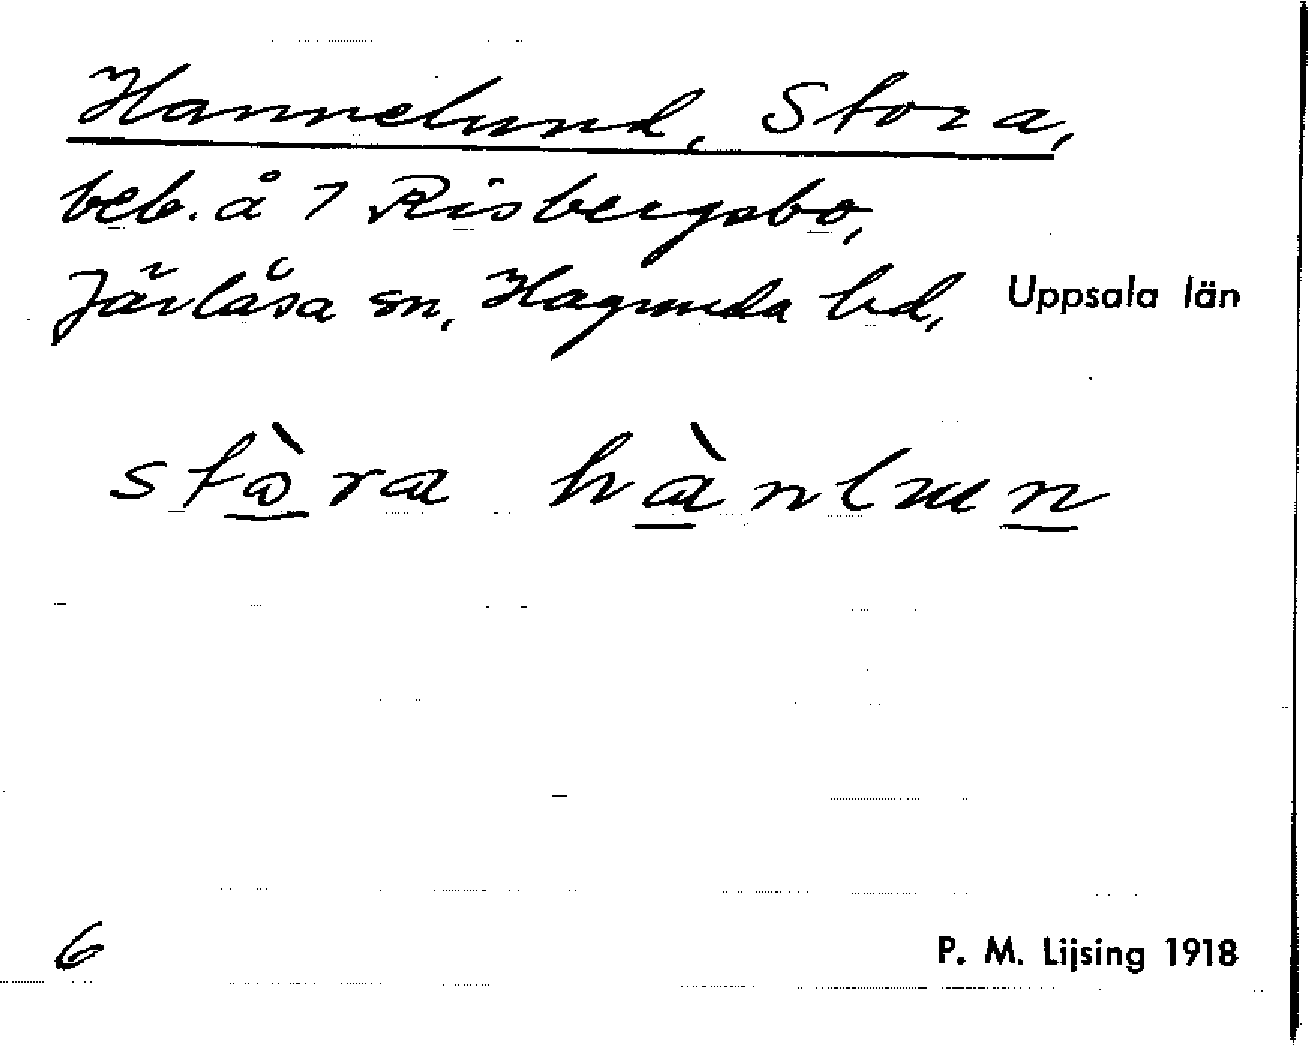 Hannelund, Stora,
beb. å 7 Risbergsbo,
Järlåsa sn, Hagunda hd, Uppsala län
stò̲ra hà̲nlun̲
6
P. M. Lijsing 1918